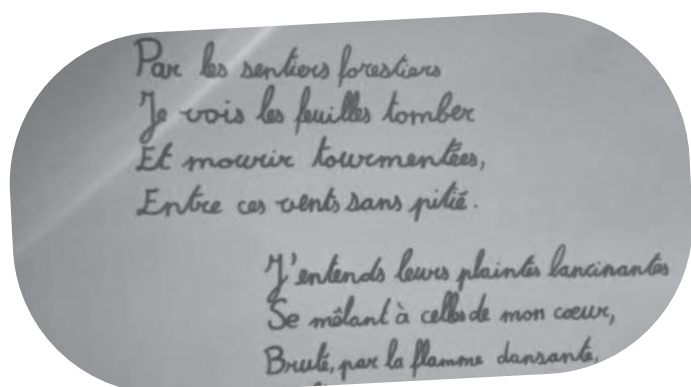 Par les sentiers forestiers
Je vois les feuilles tomber
Et mourir tourmentées,
Entre ces vents sans pitié.
J'entends leurs plaintes lancinantes
Se mêlant à celles de mon cœur,
Brulé, par la flamme dansante,